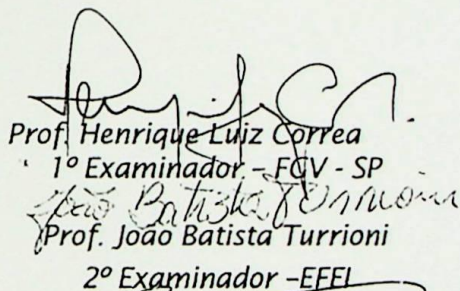 Prof. Henrique Luiz Corrêa
1º Examinador – FGV - SP
João Batista Turrioni
Prof. João Batista Turrioni
2º Examinador –EFEI